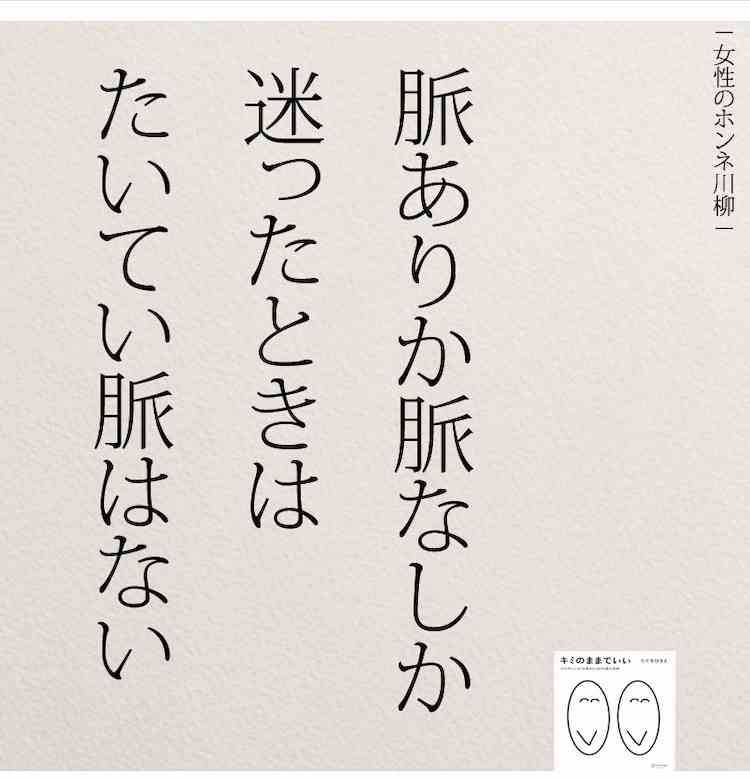 ー女性のホンネ川柳ー
脈ありか脈なしか
迷ったときは
たいてい脈はない
キミのままでいい